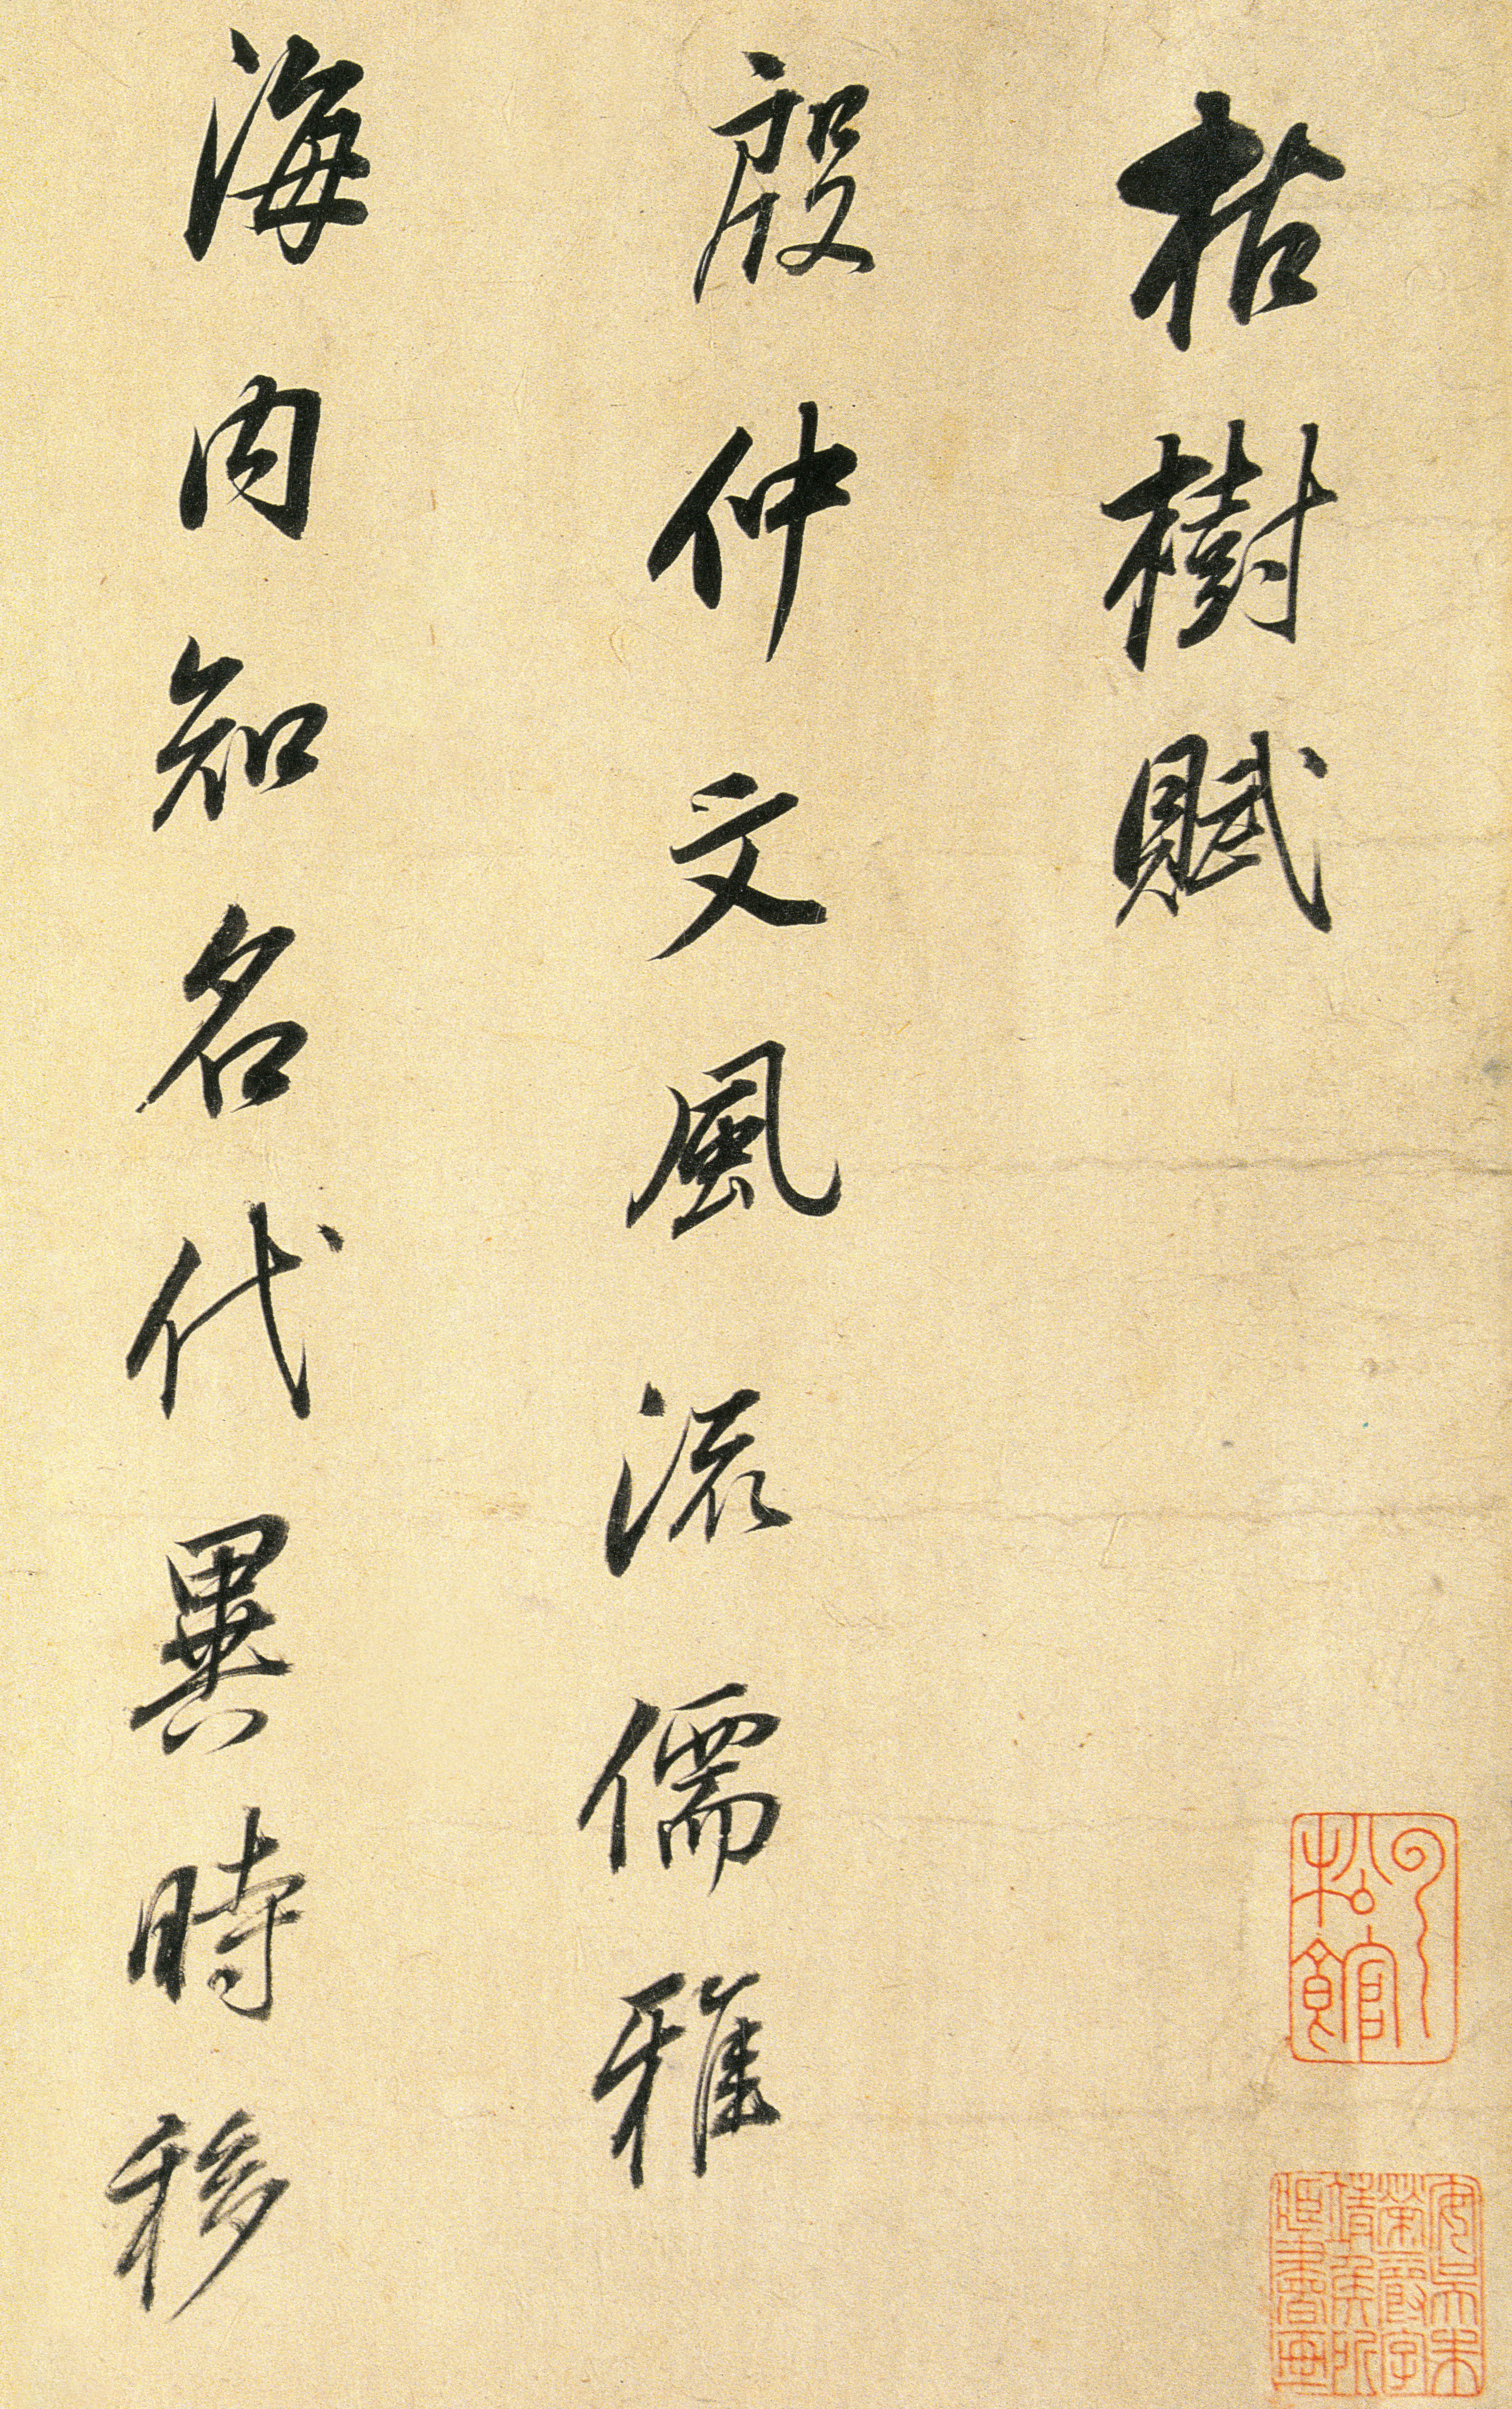 枯樹賦
殷仲文風流儒雅
海内知名代異時移
松館